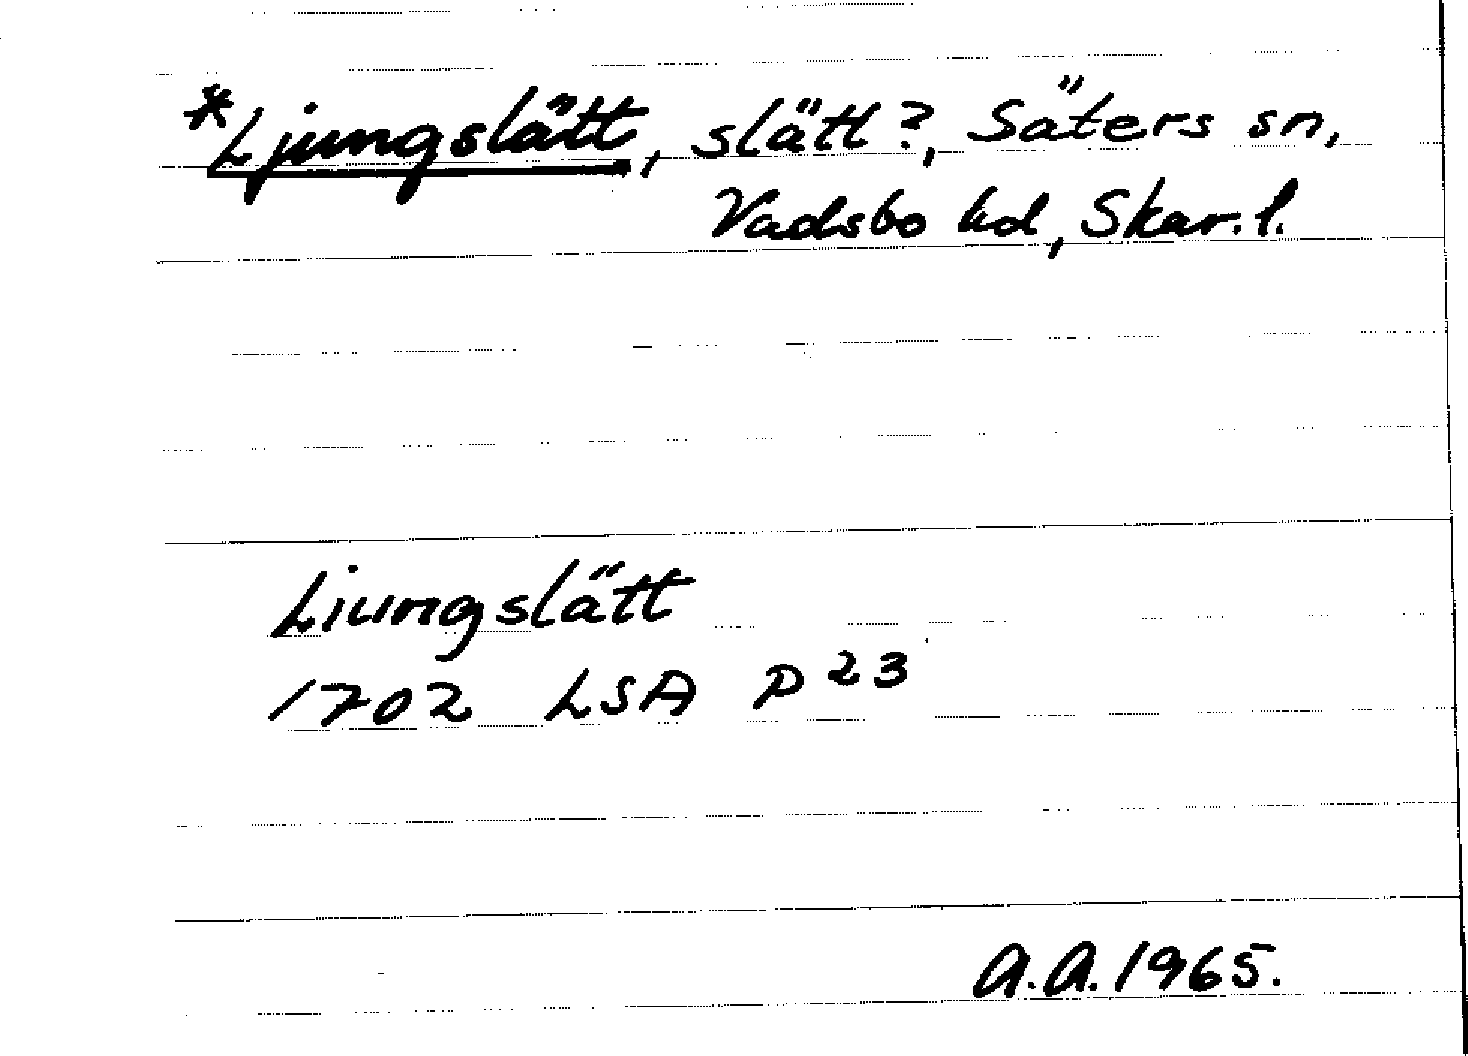 *Ljungslätt, slätt?, Säters sn,
Vadsbo hd, Skar. l.
Liungslätt
1702 LSA P 23
A.A. 1965.